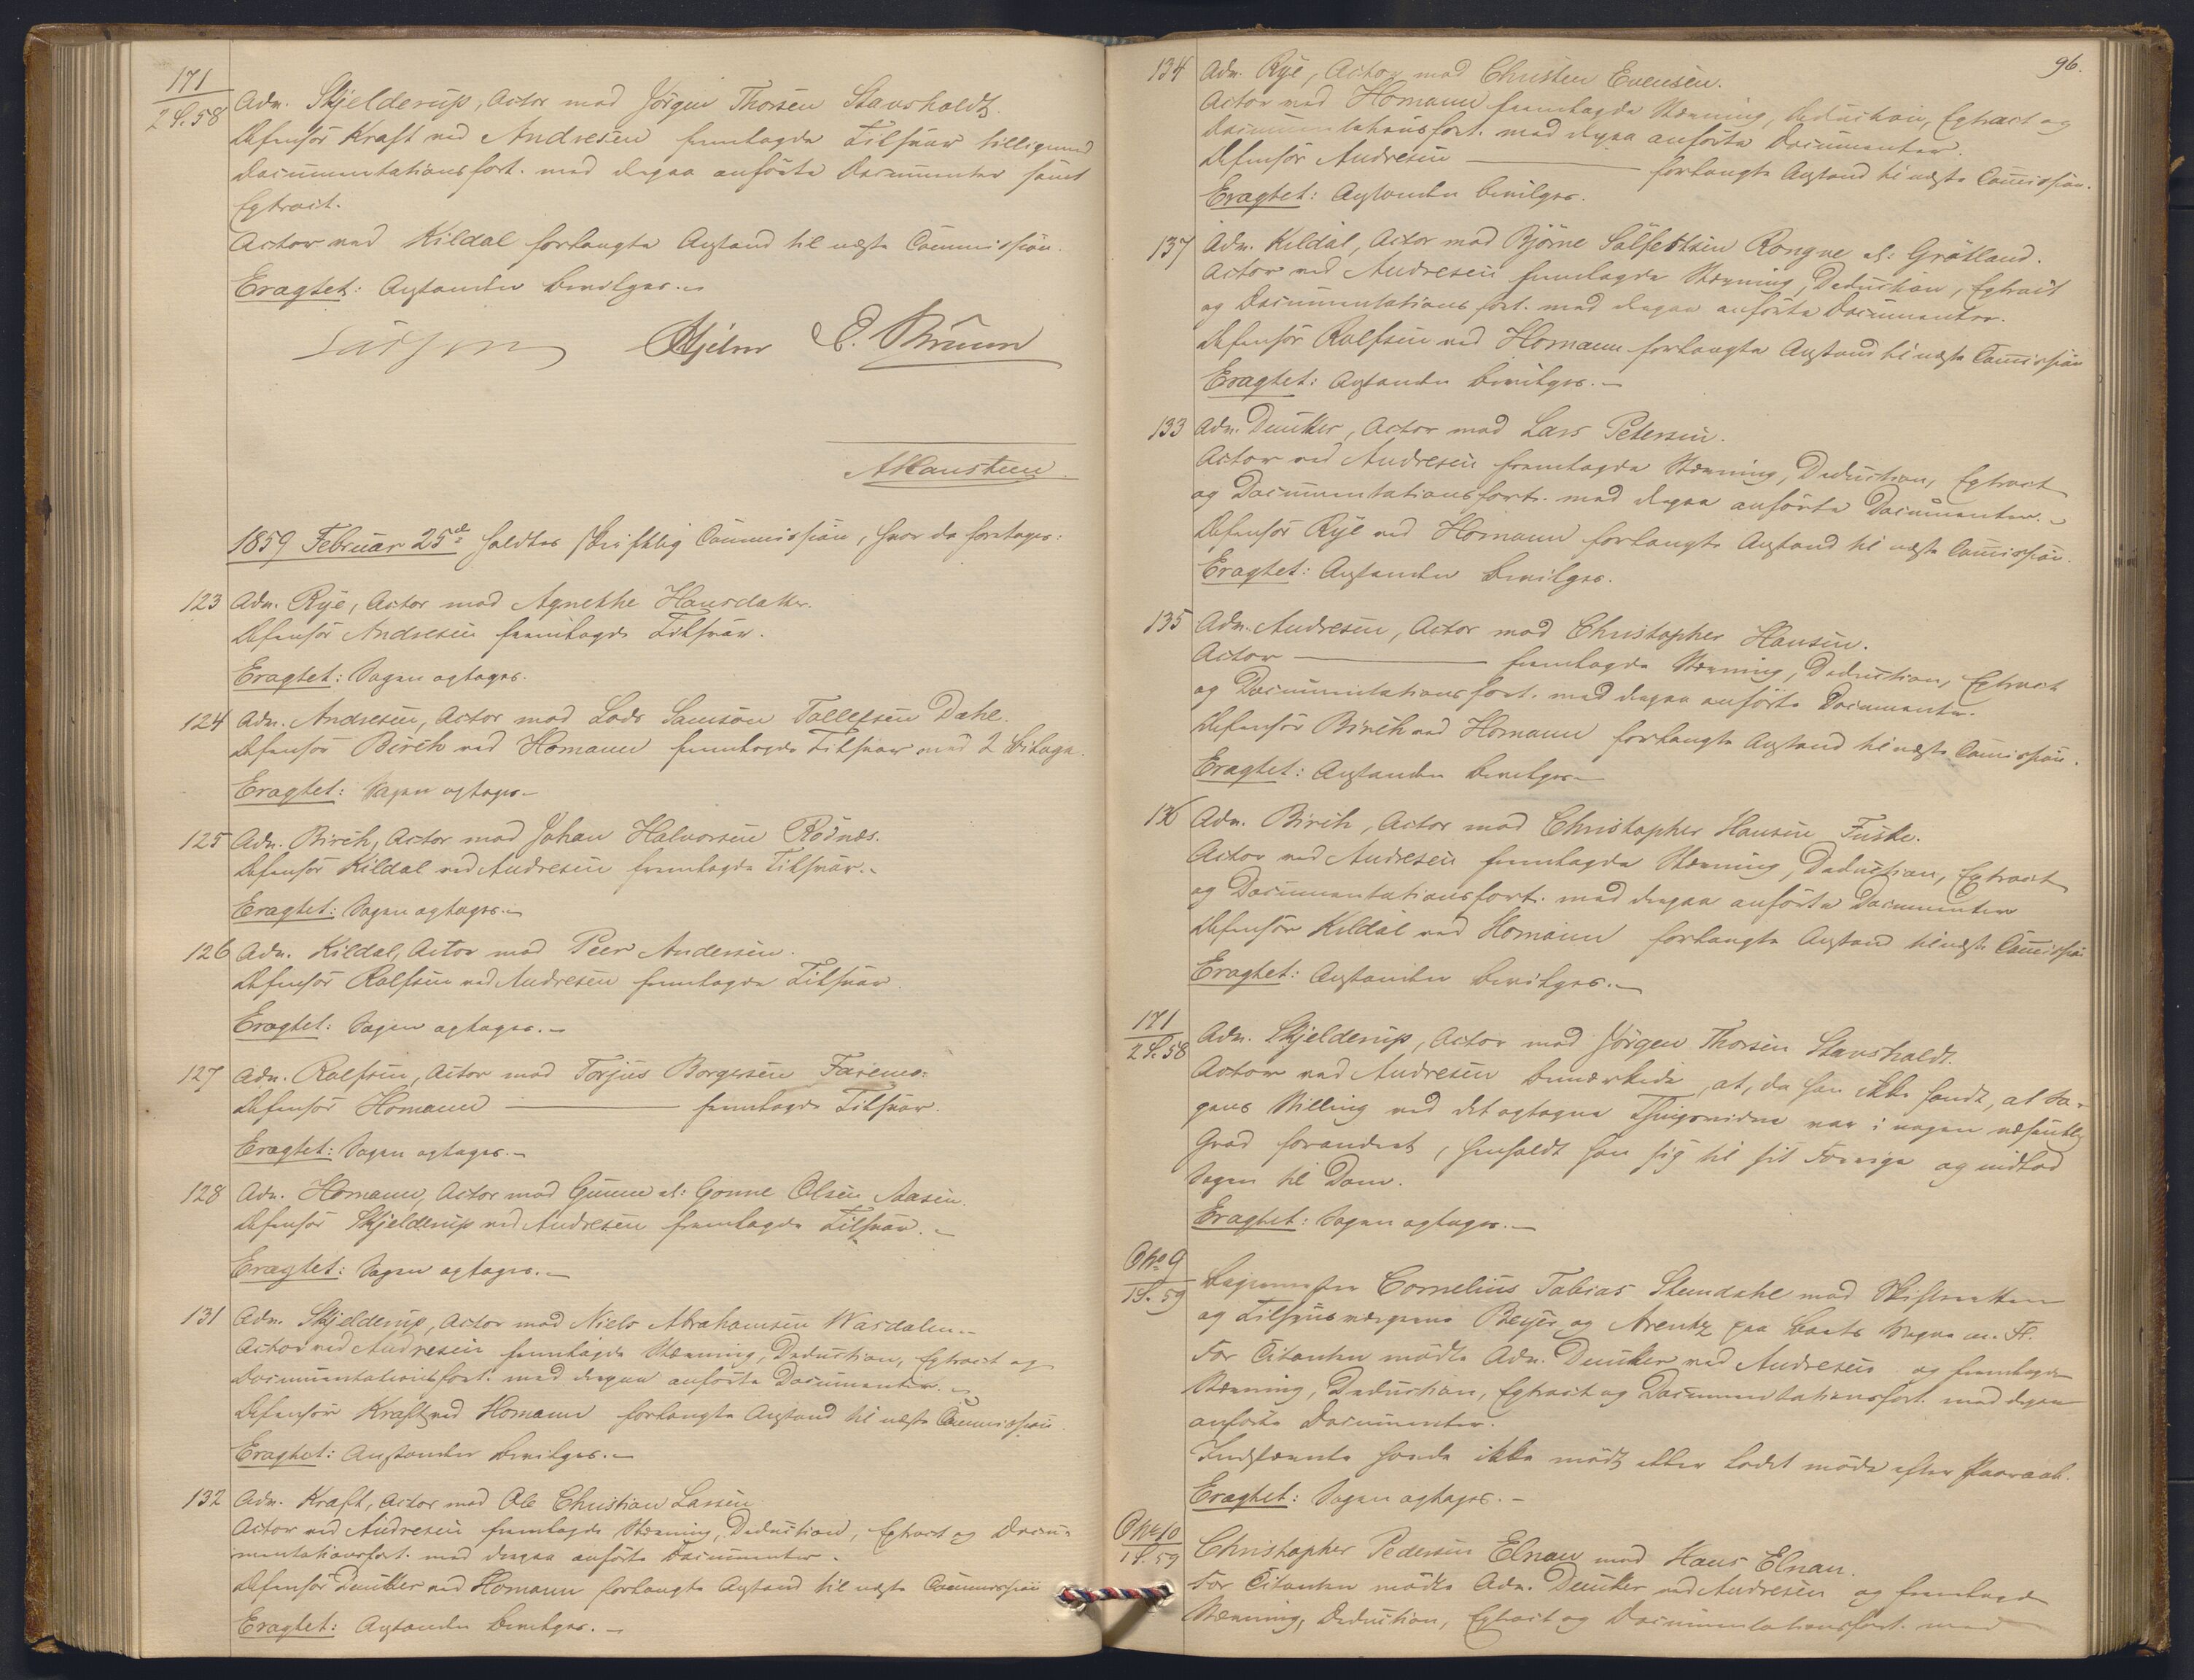 171
2 S. 58
Adv. Skjelderup, Actor mod Jörgen Thorsen Stavsholdt.
Defensor Kraft ved Andresen fremlagde Tilsvar tilligemed
Documentationsfort. med derpaa anförte Documenter samt
Extract.
Actor ved Kildal forlangte Anstand til næste Commission.
Eragtet: Anstanden bevilges.
Hjelm E. Bruun
AHansteen
1859 Februar 25de holdtes skriftlig Commission, hvor da foretoges:
123 Adv. Rye, Actor mod Agnethe Hansdatter.
Defensor Andresen fremlagde Tilsvar.
Eragtet: Sagen optages.
124 Adv. Andresen, Actor mod Lods Samson Tollefsen Dahl.
Defensor Birch ved Homann fremlagde Tilsvar med 2 Bilage.
Eragtet: Sagen optages.
125 Adv. Birch, Actor mod Johan Halvorsen Rödnæs.
Defensor Kildal ved Andresen fremlagde Tilsvar.
Eragtet: Sagen optages.
126 Adv. Kildal, Actor mod Peer Andersen.
Defensor Rolfsen ved Andresen fremlagde Tilsvar.
Eragtet: Sagen optages.
127 Adv. Rolfsen, Actor mod Torjus Borgersen Faremo.
Defensor Homann — fremlagde Tilsvar.
Eragtet: Sagen optages.
128 Adv. Homann, Actor mod Gunne el: Gonne Olsen Aasen.
Defensor Skjelderup ved Andresen fremlagde Tilsvar.
Eragtet: Sagen optages.
131 Adv. Skjelderup, Actor mod Niels Abrahamsen Wasdalen.
Actor ved Andresen fremlagde Stævning, Deduction, Extract og
Documentationsfort. med derpaa anförte Documenter.
Defensor Kraft ved Homann forlangte Anstand til næste Commission.
Eragtet: Anstanden bevilges.
132 Adv. Kraft, Actor mod Ole Christian Larsen
Actor ved Andresen fremlagde Stævning, Deduction, Extract og Docu-
mentationsfort. med derpaa anförte Documenter.
Defensor Dunker ved Homann forlangte Anstand til næste Commission
Eragtet: Anstanden bevilges.
96.
134 Adv. Rye, Actor mod Christen Evensen.
Actor ved Homann fremlagde Stævning, Deduction, Extract og
Documentationsfort. med derpaa anförte Documenter.
Defensor Andresen — forlangte Anstand til næste Comission.
Eragtet: Anstanden bevilges.
137 Adv. Kildal, Actor mod Björne Sölfestsen Rongve el: Grötland.
Actor ved Andresen fremlagde Stævning, Deduction, Extract
og Documentationsfort. med derpaa anförte Documenter.
Defensor Rolfsen ved Homann forlangte Anstand til næste Comission
Eragtet: Anstanden bevilges.
133 Adv. Dunker, Actor mod Lars Petersen.
Actor ved Andresen fremlagde Stævning, Deduction, Extract
og Documentationsfort. med derpaa anförte Documenter.
Defensor Rye ved Homann forlangte Anstand til næste Comission.
Eragtet: Anstanden bevilges.
135 Adv. Andresen, Actor mod Christopher Hansen.
Actor — fremlagde Stævning, Deduction, Extract
og Documentationsfort. med derpaa anförte Documenter.
Defensor Birch ved Homann forlangte Anstand til næste Comission.
Eragtet: Anstanden bevilges
136 Adv. Birch, Actor mod Christopher Hansen Fuske.
Actor ved Andresen fremlagde Stævning, Deduction, Extract
og Documentationsfort. med derpaa anförte Documenter
Defensor Kildal ved Homann forlangte Anstand til næste Comission
Eragtet: Anstanden bevilges.
171
2 S. 58
Adv. Skjelderup, Actor mod Jörgen Thorsen Stavsholdt.
Actor ved Andresen bemærkede, at, da han ikke fandt, at Sa-
gens Stilling ved det optagne Thingsvidne var i nogen væsentlig
Grad forandret, henholdt han sig til sit Forrige og indlod
Sagen til Dom.
Eragtet: Sagen optages.
O No 9
1 S. 59
Cornelius Tobias Stendahl mod Skifteretten
og Tilsynsværgerne Beyer og Arentz paa Boets Vegne m. Fl.
For Citanten mödte Adv. Dunker ved Andresen og fremlagde
Stævning, Deduction, Extract og Documentationsfort. med derpaa
anförte Documenter.
Indstævnte havde ikke mödt eller ladet möde efter Paaraab.
Eragtet: Sagen optages.
O No 10
1 S. 59
Christopher Pedersen Elnan mod Hans Elnan.
For Citanten mödte Adv. Dunker ved Andresen og fremlagde
Stævning, Deduction, Extract og Documentationsfort. med